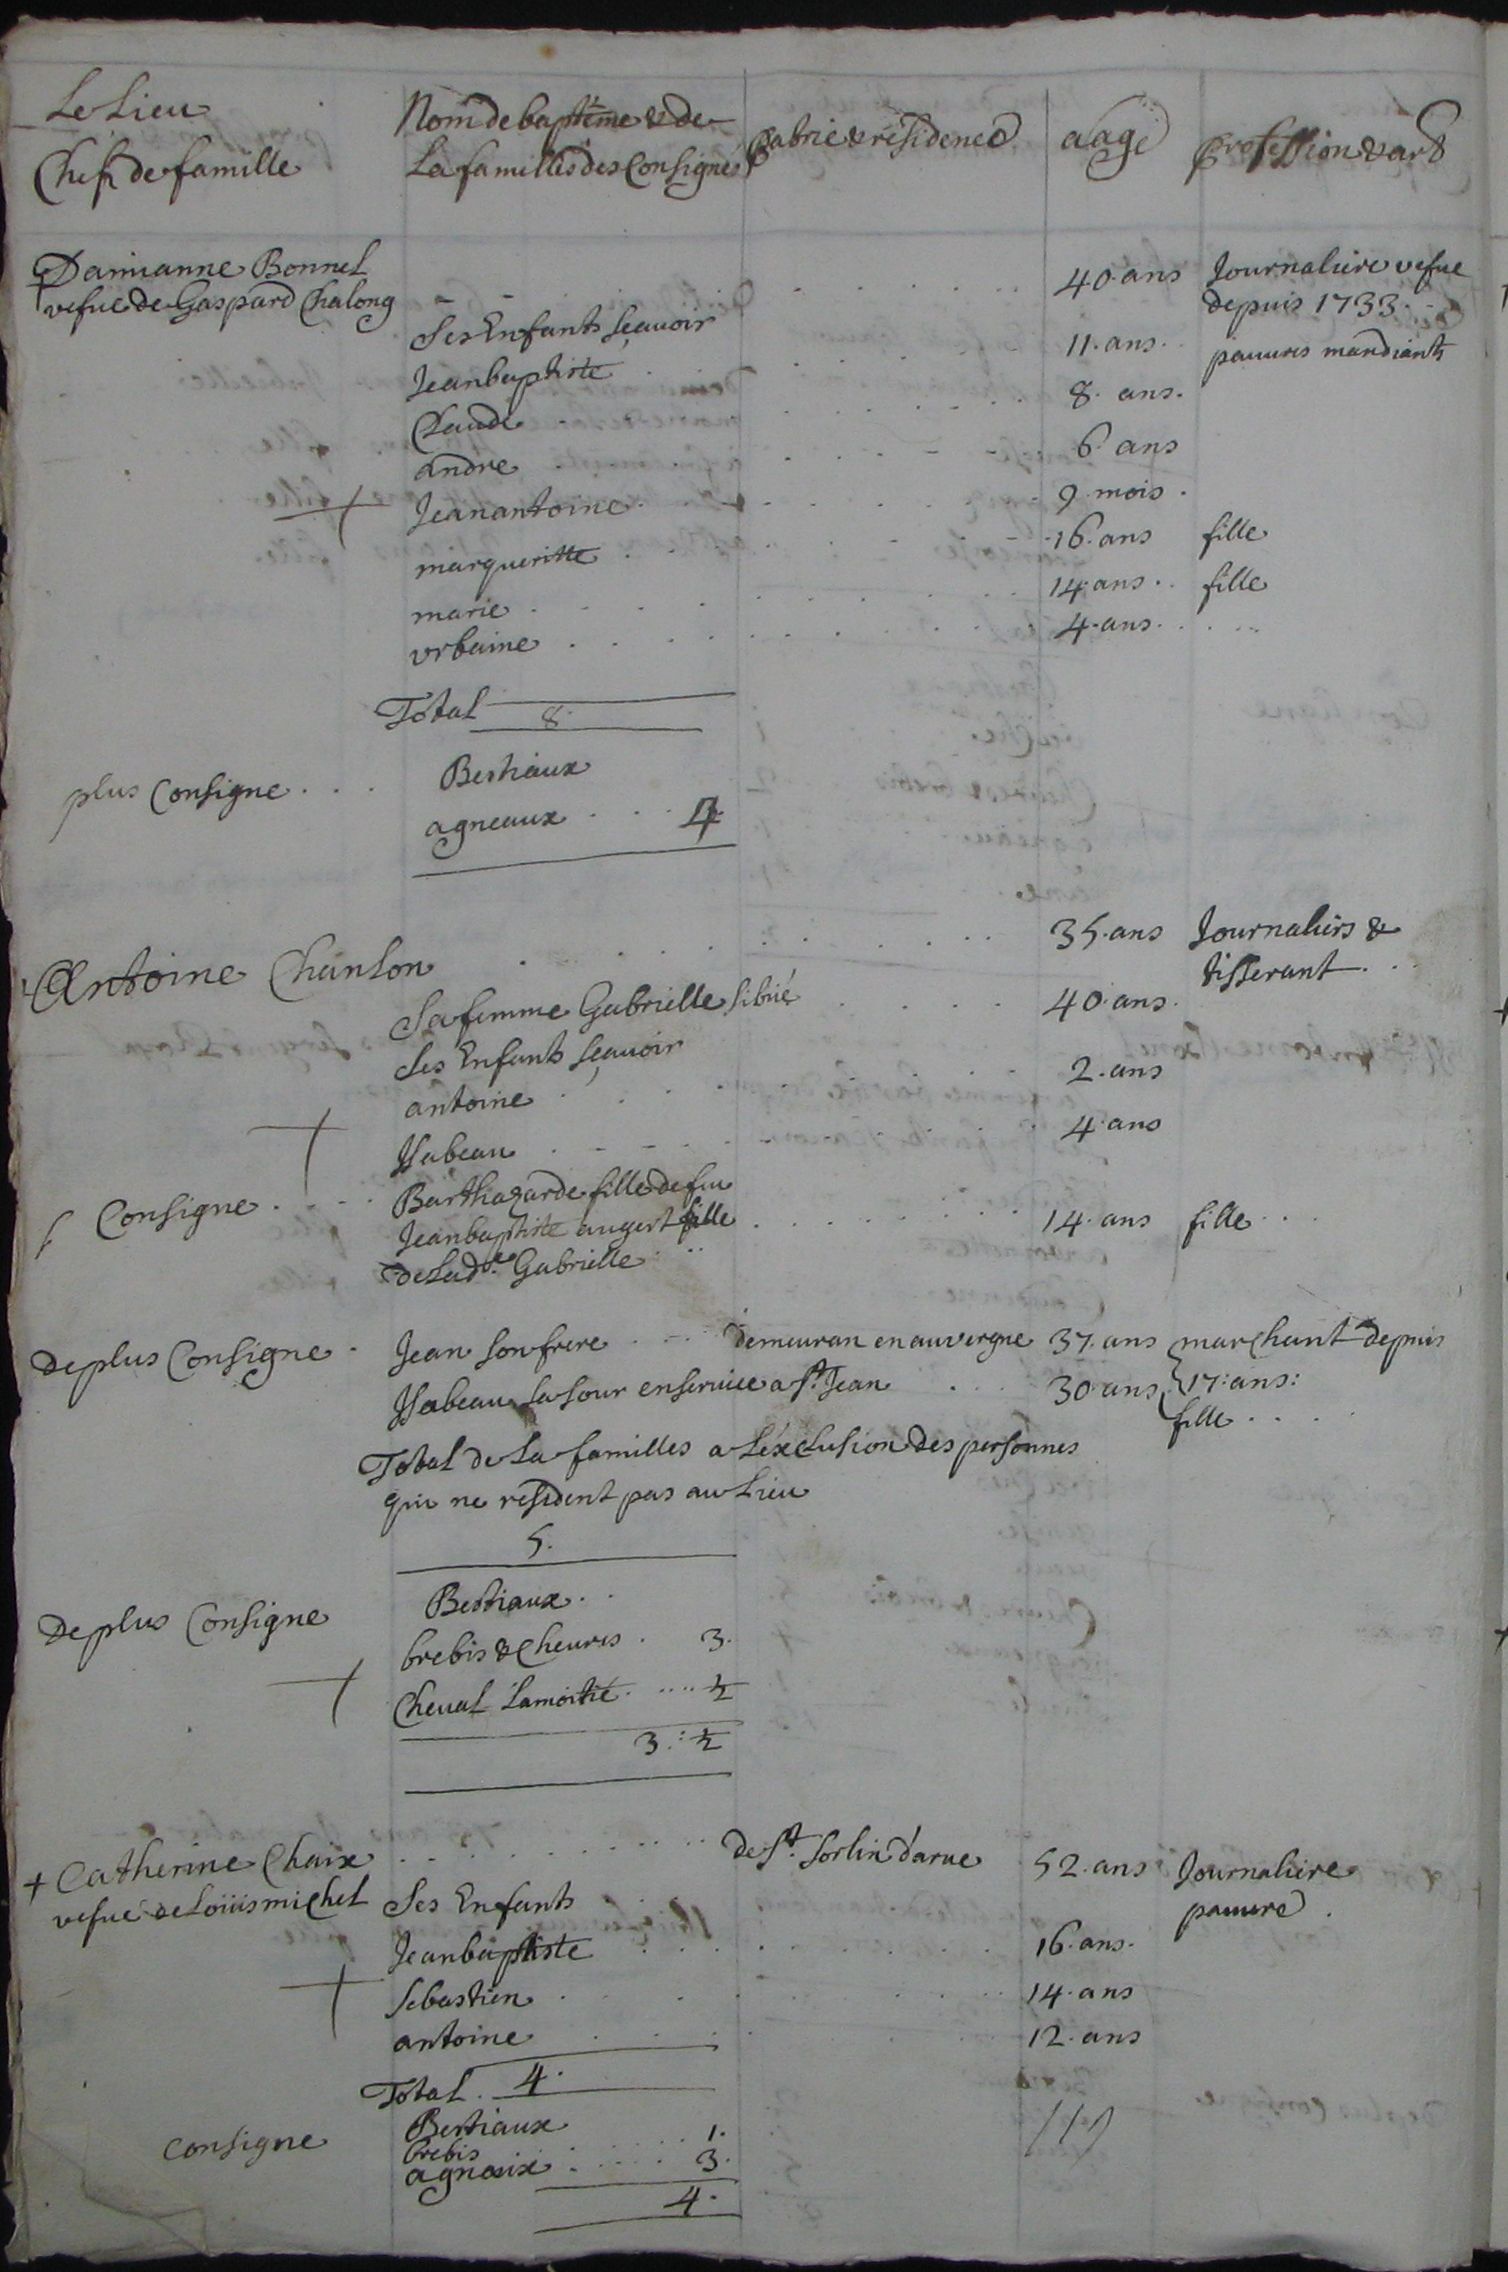 Le Lieu
Chef de famille
Nom de baptême & de
La familles des Consignés
patrie & residence
aage
profession & art
Damianne Bonnel
vefue de Gaspard Chalong
40 ans
Journaliere vefue
depuis 1733
Ses Enfants sçauoir
Jeanbaptiste 11 ans. pauures mandiants
Claude 8. ans.
andre 6 ans
Jeanantoine 9 mois.
margueritte 16. ans fille
marie 14 ans fille
vrbaine 4 ans
Total 8.
plus Consigne Bestiaux
agneaux 4
Antoine Chanlon 35 ans Journaliers &
tisserant
Sa femme Gabrielle Sibué 40 ans.
Ses Enfants sçauoir
antoine 2. ans
Jsabeau 4 ans
Consigne
Barthazarde fille de feu
Jeanbaptiste augert fille 14 ans fille
de Lad.e Gabrielle
De plus Consigne Jean Son frere demeuran en auvergne 37. ans marchant depuis
17: ans:
Jsabeau Sa sour en seruice a St. Jean 30 ans
fille
Total de La familles a L'exclusion des personnes
qui ne resident pas au Lieu
5.
De plus Consigne
Bestiaux
brebis & cheures 3.
Cheual Lamoitié ½
3. ½
+ Catherine Chaix de St. Sorlin d'arue 52. ans Journaliere
vefue de Loüis michel pauure
Ses Enfants
Jeanbaptiste 16. ans.
Sebastien 14. ans
antoine 12. ans
Total 4.
Consigne
Bestiaux
brebis 1.
agneaux 3.
4.